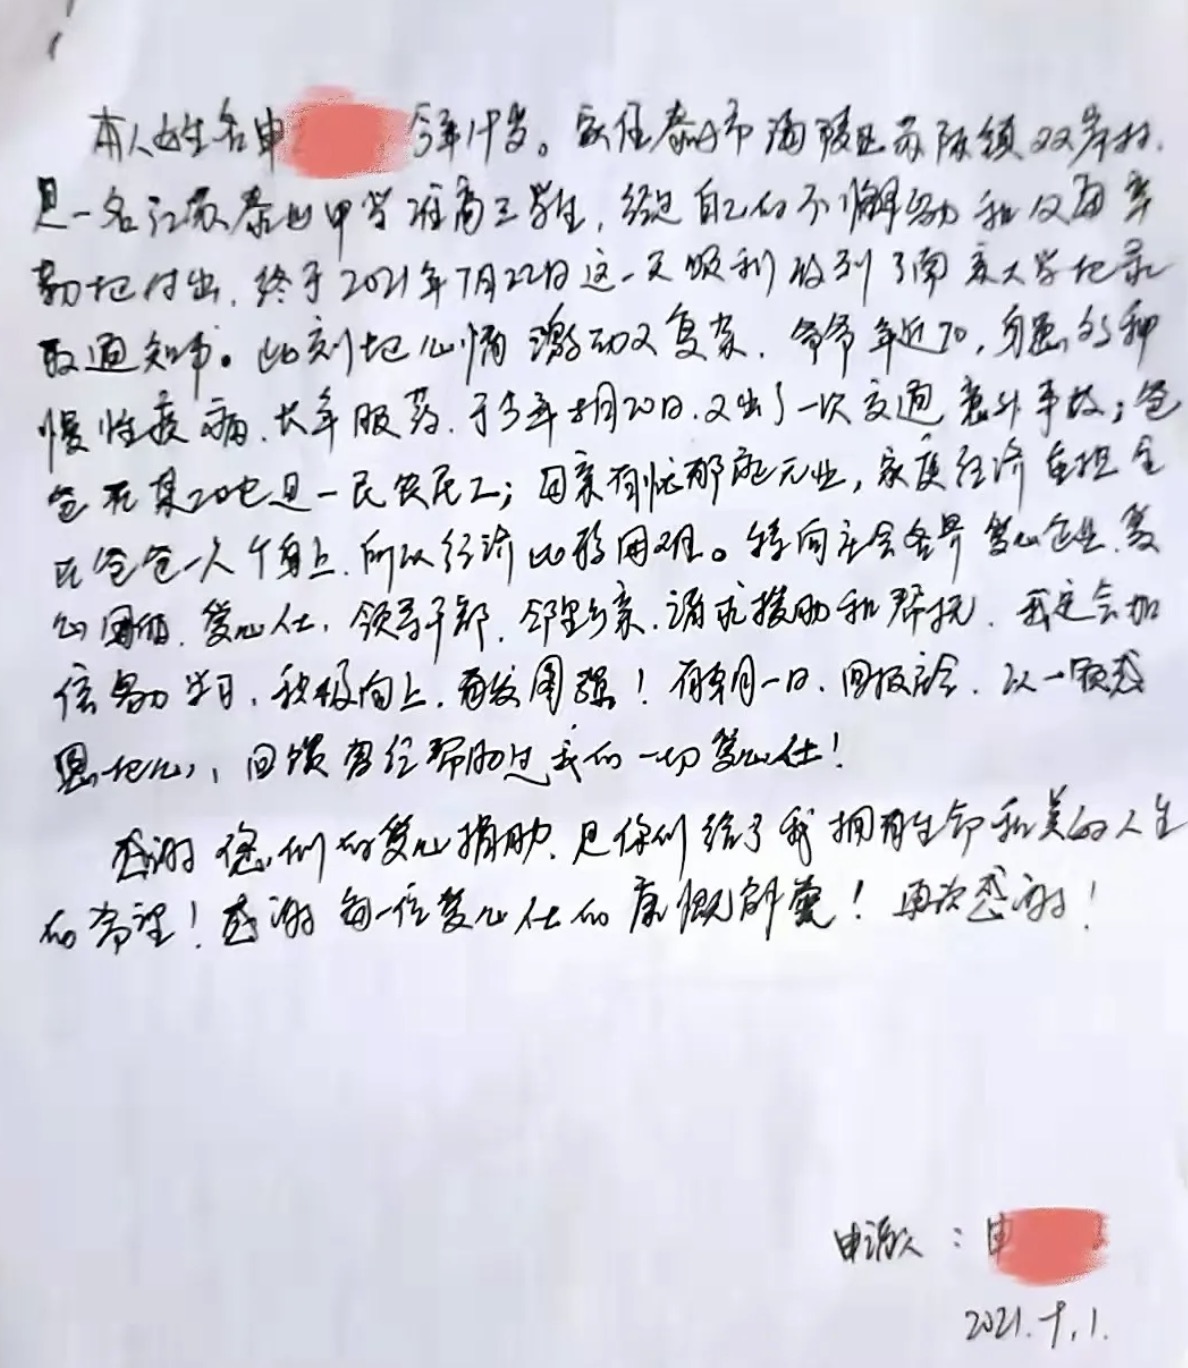 本人姓名申 今年19岁。家住泰州市海陵区苏陈镇双岸村,
是一名江苏泰州中学准高三学生,经过自己的不懈努力和父母辛
勤地付出,终于2021年7月22日这一天顺利收到了南京大学地录
取通知书。此刻地心情激动又复杂,爷爷年近70,身患多种
慢性疾病,长年服药,于今年8月20日,又出了一次交通意外事故;爸
爸在某工地是一民农民工;母亲有忧郁症无业,家庭经济重担全
在爸爸一人个身上,所以经济比较困难。特向社会各界爱心企业,爱
心团伍,爱心人仕,领导干部,邻里乡亲,请求援助和帮扶,我定会加
倍努力学习,积极向上,奋发图强!有朝一日,回报社会,以一颗感
恩地心,回馈曾经帮助过我的一切爱心人仕!
感谢您们的爱心捐助,是你们给了我拥有生命和美的人生
的希望!感谢每一位爱心人仕的慷慨解囊!再次感谢!
申请人:申
2021.9.1.